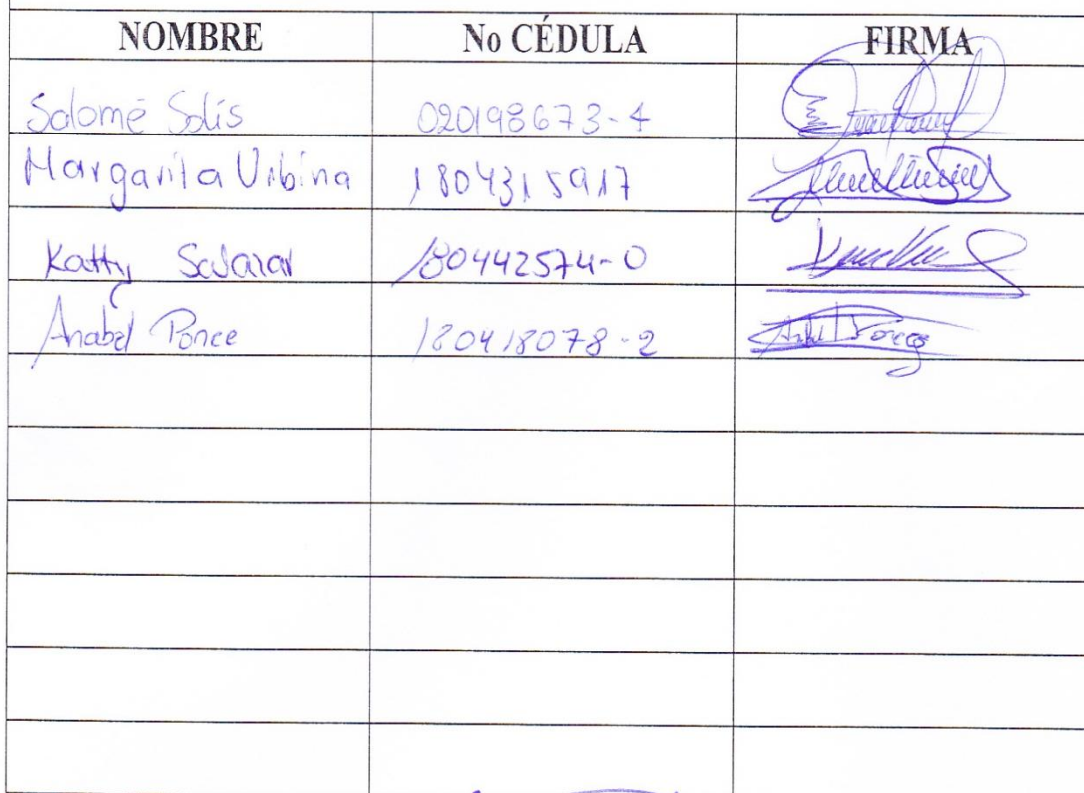 NOMBRE No CÉDULA FIRMA
Salomé Solís 020198673-4
Margarita Urbina 1804315917
Katty Salazar 180442574-0
Anabel Ponce 180418078-2